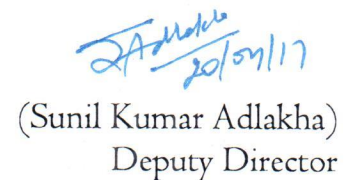 SAdlakha
20/07/17
(Sunil Kumar Adlakha)
Deputy Director